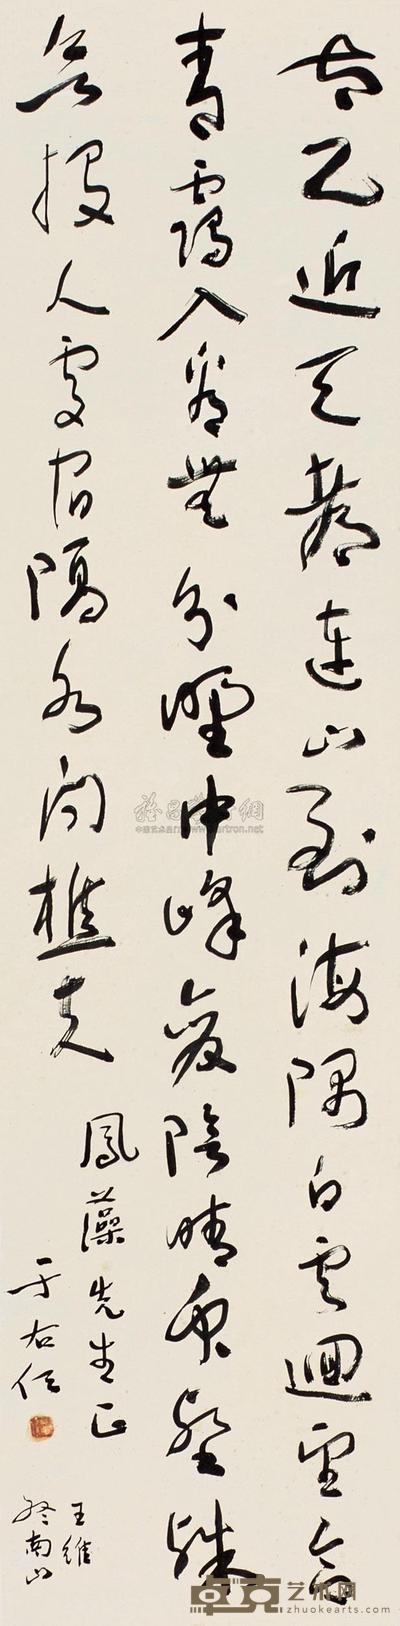 太乙近天都連山到海隅白雲迴望合
青靄入看無分野中峰變陰晴眾壑殊
欲投人處宿隔水問樵夫
鳳藻先生正
于右任
王維
終南山
卓克艺术网
zhuokearts.com